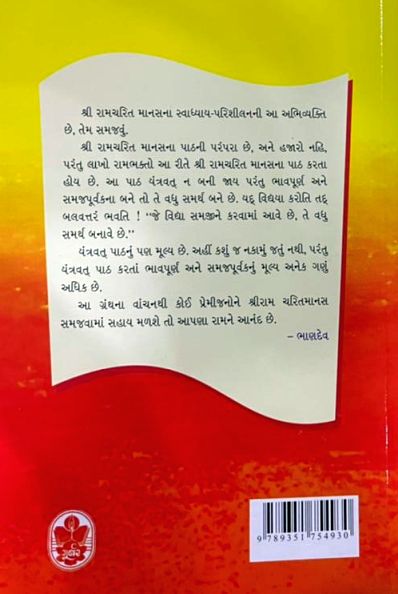 શ્રી રામચરિત માનસના સ્વાધ્યાય-પરિશીલનની આ અભિવ્યક્તિ
છે, તેમ સમજવું.
શ્રી રામચરિત માનસના પાઠની પરંપરા છે, અને હજારો નહિ,
પરંતુ લાખો રામભક્તો આ રીતે શ્રી રામચરિત માનસના પાઠ કરતા
હોય છે. આ પાઠ યંત્રવત્ ન બની જાય પરંતુ ભાવપૂર્ણ અને
સમજપૂર્વકના બને તો તે વધુ સમર્થ બને છે. યદ્ વિદ્યયા કરોતિ તદ્
બલવત્તરં ભવતિ ! ‘‘જે વિદ્યા સમજીને કરવામાં આવે છે, તે વધુ
સમર્થ બનાવે છે.’’
યંત્રવત્ પાઠનું પણ મૂલ્ય છે. અહીં કશું જ નકામું જતું નથી, પરંતુ
યંત્રવત્ પાઠ કરતાં ભાવપૂર્ણ અને સમજપૂર્વકનું મૂલ્ય અનેક ગણું
અધિક છે.
આ ગ્રંથના વાંચનથી કોઈ પ્રેમીજનોને શ્રીરામ ચરિતમાનસ
સમજવામાં સહાય મળશે તો આપણા રામને આનંદ છે.
– ભાણદેવ
ગૂર્જર
9 789351 754930